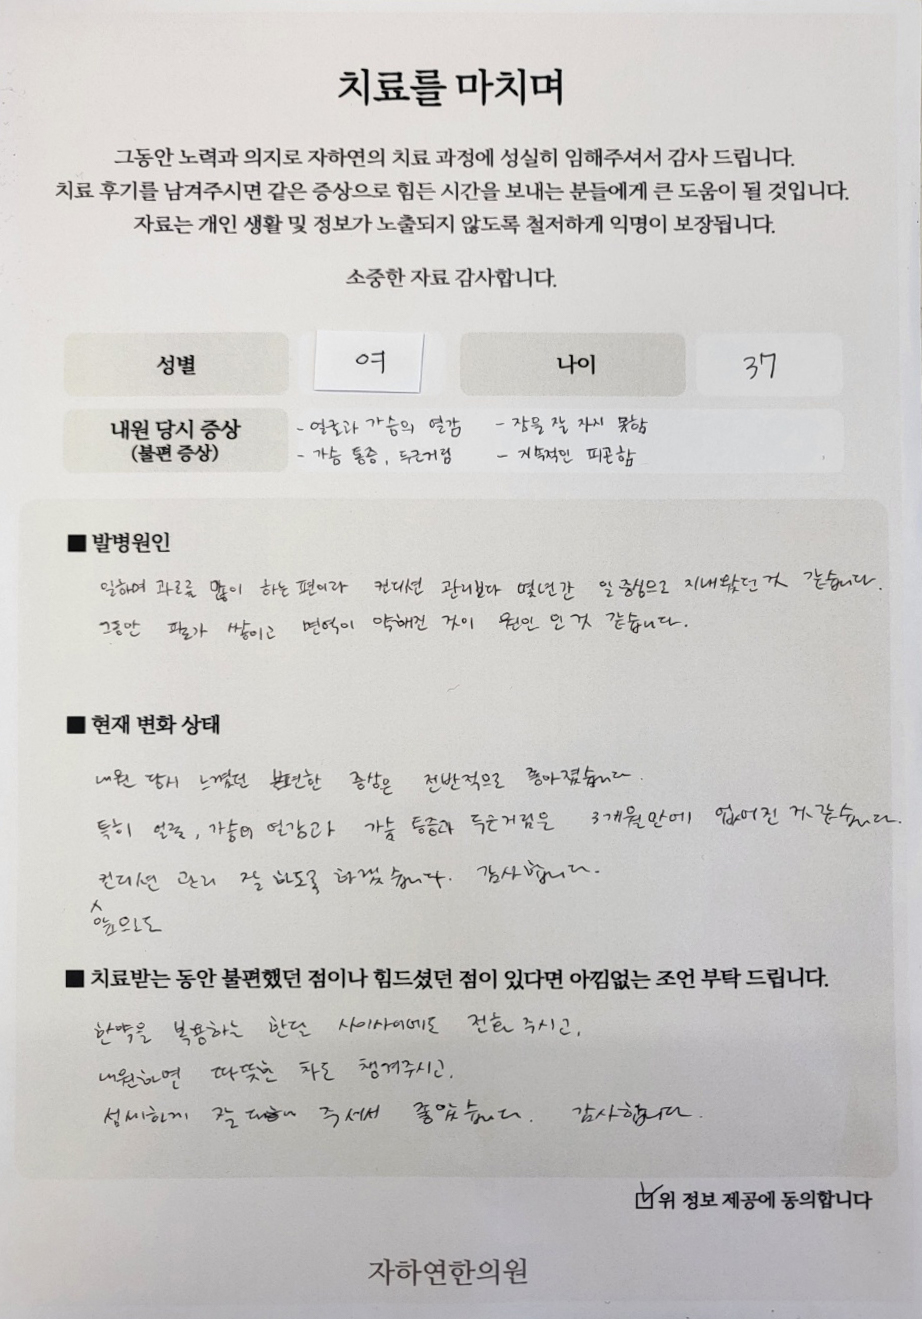 치료를 마치며
그동안 노력과 의지로 자하연의 치료 과정에 성실히 임해주셔서 감사 드립니다.
치료 후기를 남겨주시면 같은 증상으로 힘든 시간을 보내는 분들에게 큰 도움이 될 것입니다.
자료는 개인 생활 및 정보가 노출되지 않도록 철저하게 익명이 보장됩니다.
소중한 자료 감사합니다.
성별 여 나이 37
내원 당시 증상
(불편 증상)
- 얼굴과 가슴의 열감 - 잠을 잘 자지 못함
- 가슴 통증, 두근거림 - 지속적인 피곤함
■ 발병원인
일하며 과로를 많이 하는 편이라 컨디션 관리보다 몇년간 일 중심으로 지내왔던 것 같습니다.
그동안 피로가 쌓이고 면역이 약해진 것이 원인 인 것 같습니다.
■ 현재 변화 상태
내원 당시 느꼈던 불편한 증상은 전반적으로 좋아졌습니다.
특히 얼굴, 가슴의 열감과 가슴 통증과 두근거림은 3개월만에 없어진 것 같습니다.
컨디션 관리 잘 하도록 하겠습니다. 감사합니다.
앞으로도
■ 치료받는 동안 불편했던 점이나 힘드셨던 점이 있다면 아낌없는 조언 부탁 드립니다.
한약을 복용하는 한달 사이사이에도 전화 주시고,
내원하면 따뜻한 차도 챙겨주시고,
섬세하게 잘 대해 주셔서 좋았습니다. 감사합니다.
위 정보 제공에 동의합니다
자하연한의원